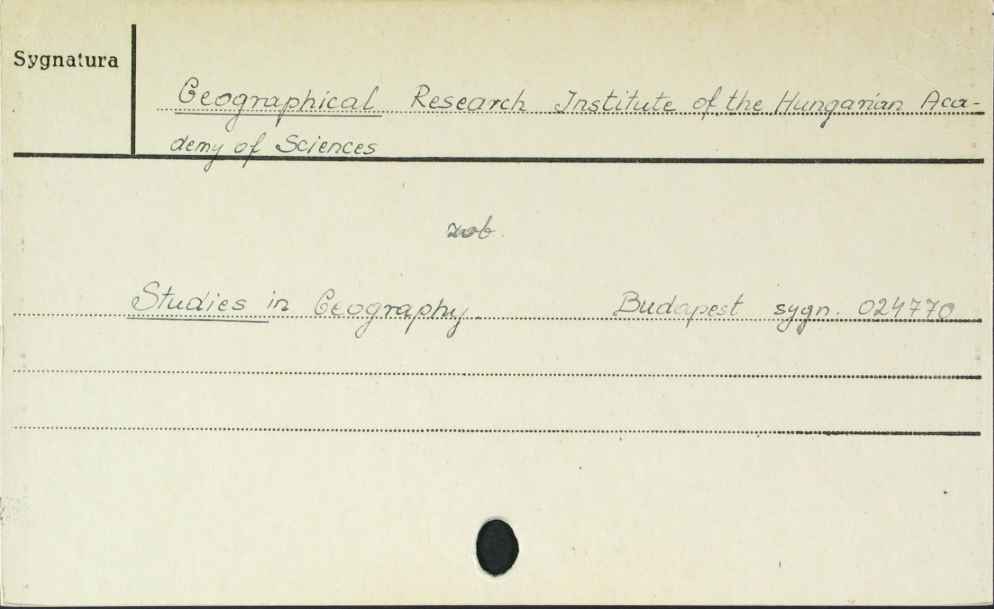 Sygnatura
Geographical Research Institute of the Hungarian Aca-
demy of Sciences
zob.
Studies in Geography. Budapest sygn. 024770